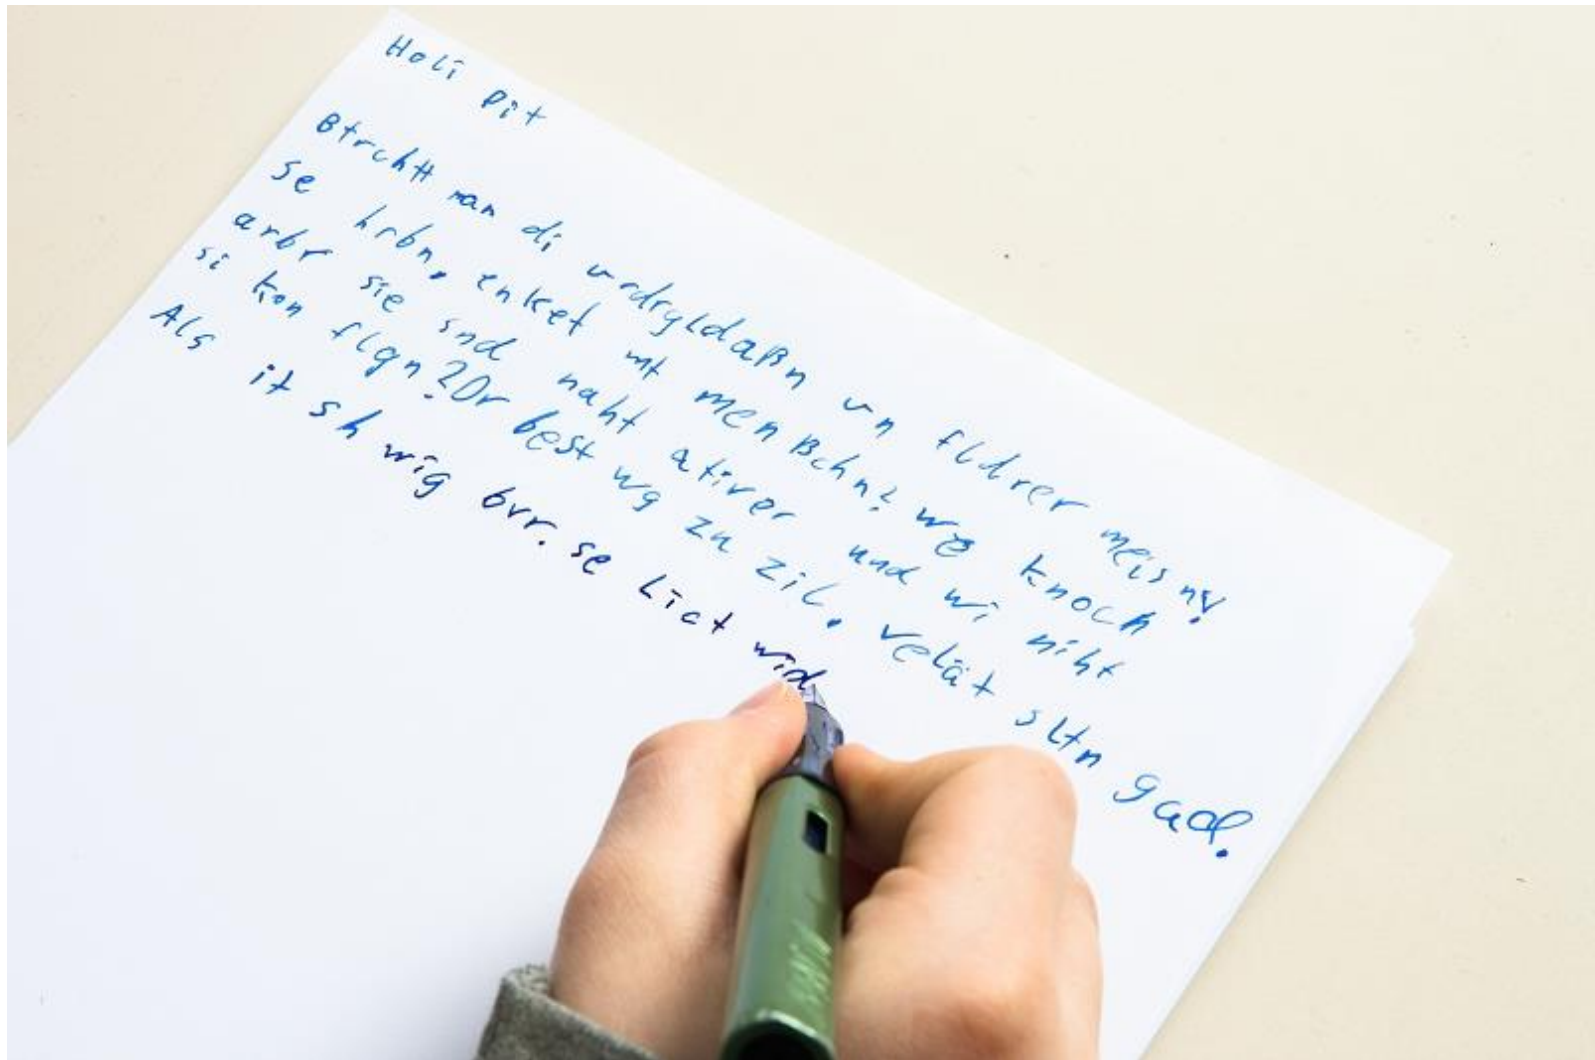 Holi Pit
Btrchtt man di urdrgldaßn vn fldrer meisn!
se hrbn. enket mt menßchn? we knoch
arbr sie snd naht ativer und wi niht
si kon flgn? Dr best wg zu zil. velät sltn gad.
Als it sh wig bvr. se Lict wid